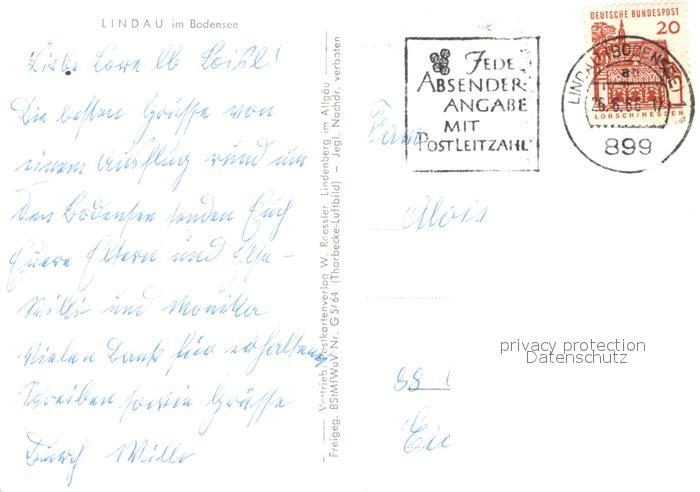 LINDAU im Bodensee
Liebe Lore lb Loisl!
Die besten Grüsse von
einem Ausflug rund um
den Bodensee senden Euch
Euere Eltern und
Willi und Monika
Vielen Dank für erhaltenes
Schreiben sowie Grüsse
durch Willi
Vertrieb: Postkartenverlag W. Roessler, Lindenberg im Allgäu
Freigeg. BStMfWuV Nr. G 5/64 (Thorbecke-Luftbild) — Jegl. Nachdr. verboten
JEDE
ABSENDER-
ANGABE
MIT
POSTLEITZAHL
DEUTSCHE BUNDESPOST
20
LORSCH/HESSEN
LINDAU (BODENSEE)
899
Fam
Alois
privacy protection
Datenschutz